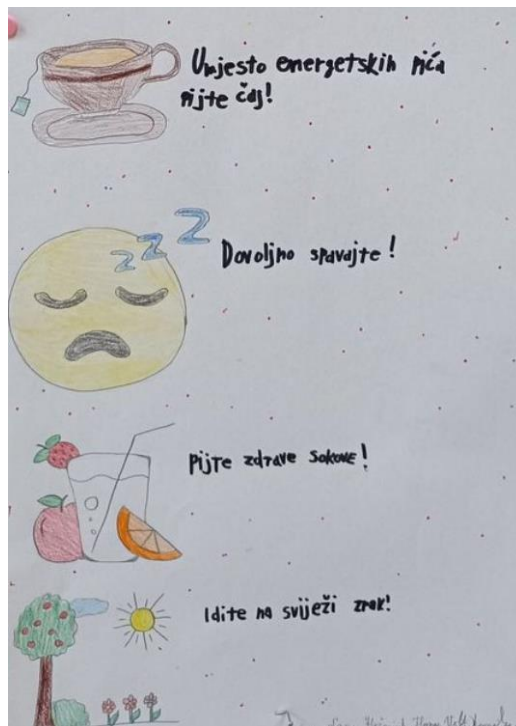 Umjesto energetskih pića
pijte čaj!
z z Z
Dovoljno spavajte!
Pijte zdrave sokove!
Idite na sviježi zrak!